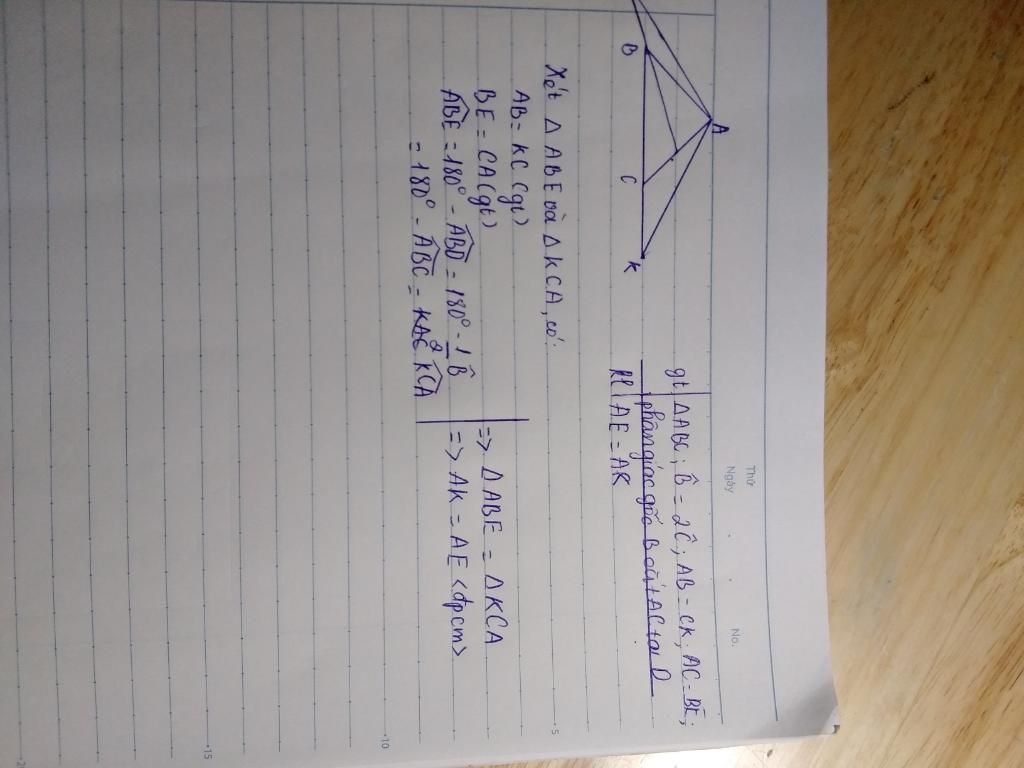 Thứ
Ngày
No.
gt | ΔABC, B̂ = 2Ĉ, AB = CK, AC = BE;
phân giác góc B cắt AC tại D
kl | AE = AK
A
B
C
K
Xét Δ ABE và Δ KCA, có:
AB = KC (gt)
BE = CA (gt)
ABE = 180° - ABD = 180° - 1/2 B̂
= 180° - ABC = KAC KCA
=> ΔABE = ΔKCA
=> AK = AE <đpcm>
5
10
15
20